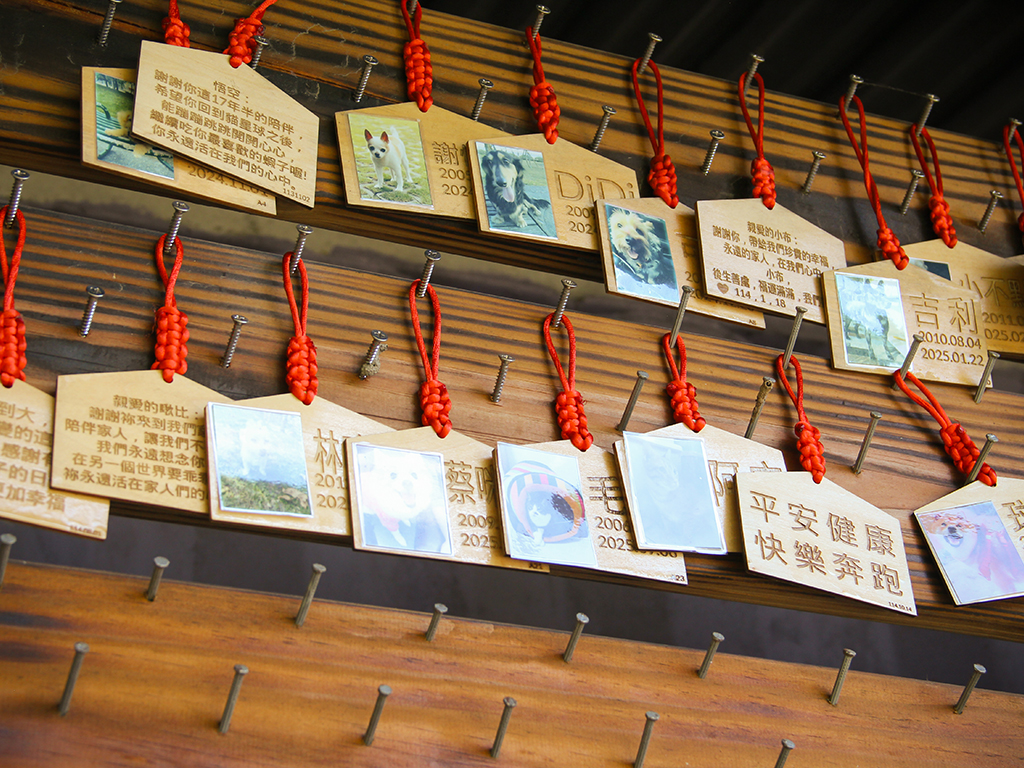 悟空：
謝謝你這17年半的陪伴，
希望你回到貓星球之後，
能蹦蹦跳跳開開心心，
繼續吃你最喜歡的蝦子喔!
你永遠活在我們的心中。
1131102
2024.11.0
A4
謝
200
202
DiDi
200
202
親愛的小布：
謝謝你，帶給我們珍貴的幸福
永遠的家人，在我們心中
小布，
後生善處，福運滿滿，我們
114，1，18
吉利
2010.08.04
2025.01.22
小不點
2011.0
025.02
到大
感謝有
子的日
更加幸福
親愛的啾比：
謝謝祢來到我們
陪伴家人，讓我們不
我們永遠想念你
在另一個世界要乖
祢永遠活在家人們的
林
201
202
蔡
2009
2025
A21
毛
2006
2025.07.08
23
阿
平安健康
快樂奔跑
114.10.14